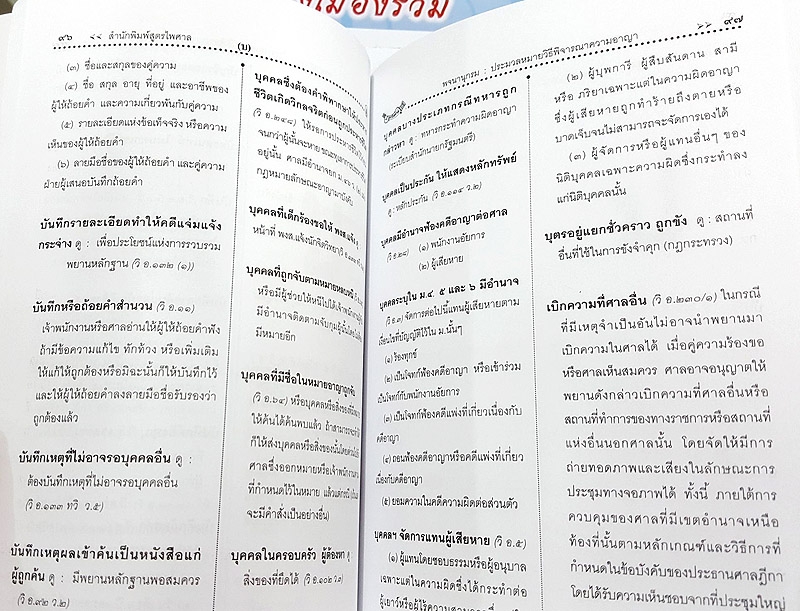 เมืองรวม
๙๖ << สำนักพิมพ์สูตรไพศาล
(บ)
(๓) ชื่อและสกุลของคู่ความ
(๔) ชื่อ สกุล อายุ ที่อยู่ และอาชีพของ
ผู้ให้ถ้อยคำ และความเกี่ยวพันกับคู่ความ
(๕) รายละเอียดแห่งข้อเท็จจริง หรือความ
เห็นของผู้ให้ถ้อยคำ
(๖) ลายมือชื่อของผู้ให้ถ้อยคำ และคู่ความ
ฝ่ายผู้เสนอบันทึกถ้อยคำ
บันทึกรายละเอียดทำให้คดีแจ่มแจ้ง
กระจ่าง ดู : เพื่อประโยชน์แห่งการรวบรวม
พยานหลักฐาน (วิ อ.๑๓๒ (๑))
บันทึกหรือถ้อยคำสำนวน (วิ อ.๑๑)
เจ้าพนักงานหรือศาลอ่านให้ผู้ให้ถ้อยคำฟัง
ถ้ามีข้อความแก้ไข ทักท้วง หรือเพิ่มเติม
ให้แก้ให้ถูกต้องหรือมิฉะนั้นก็ให้บันทึกไว้
และให้ผู้ให้ถ้อยคำลงลายมือชื่อรับรองว่า
ถูกต้องแล้ว
บันทึกเหตุที่ไม่อาจรอบุคคลอื่น ดู :
ต้องบันทึกเหตุที่ไม่อาจรอบุคคลอื่น
(วิ อ.๑๓๓ ทวิ ว.๕)
บันทึกเหตุผลเข้าค้นเป็นหนังสือแก่
ผู้ถูกค้น ดู : มีพยานหลักฐานพอสมควร
(วิ อ.๙๒ ว.๒)
บุคคลซึ่งต้องคำพิพากษาให้
ชีวิตเกิดวิกลจริตก่อนถูกประหารชีวิต
(วิ อ.๒๔๘) ให้รอการประหารชีวิต
จนกว่าผู้นั้นจะหาย
อยู่นั้น ศาลมีอำนาจยก
กฎหมายลักษณะอาญามาบังคับ
บุคคลที่เด็กร้องขอให้ พงส.
หน้าที่ พงส.แจ้งนักจิตวิทยา
บุคคลที่ถูกจับตามหมายหลบหนี
หรือมีผู้ช่วยให้หนีไปได้ เจ้าพนักงาน
มีอำนาจติดตามจับกุมผู้นั้นโดยไม่ต้อง
มีหมายอีก
บุคคลที่มีชื่อในหมายอาญาถูกจับ
(วิ อ.๖๔) หรือบุคคลหรือสิ่งของที่
ให้ค้นได้ค้นพบแล้ว ถ้าสามารถจะทำได้
ก็ให้ส่งบุคคลหรือสิ่งของนั้นโดยด่วนไปยัง
ศาลซึ่งออกหมายหรือเจ้าพนักงาน
ที่กำหนดไว้ในหมาย แล้วแต่กรณี
จะมีคำสั่งเป็นอย่างอื่น)
บุคคลในครอบครัว ผู้ต้องหา ดู :
สิ่งของที่ยึดได้ (วิ อ.๑๐๒ ว.๓)
พจนานุกรม : ประมวลกฎหมายวิธีพิจารณาความอาญา >> ๙๗
บุคคลบางประเภทกรณีทหารถูก
กล่าวหา ดู : ทหารกระทำความผิดอาญา
(ระเบียบสำนักนายกรัฐมนตรี)
บุคคลเป็นประกัน ให้แสดงหลักทรัพย์
ดู : หลักประกัน (วิ อ.๑๑๔ ว.๒)
บุคคลมีอำนาจฟ้องคดีอาญาต่อศาล
(วิ อ.๒๘) (๑) พนักงานอัยการ
(๒) ผู้เสียหาย
บุคคลระบุใน ม.๔ ๕ และ ๖ มีอำนาจ
(วิ อ.๓) จัดการต่อไปนี้แทนผู้เสียหายตาม
เงื่อนไขที่บัญญัติไว้ใน ม.นั้นๆ
(๑) ร้องทุกข์
(๒) เป็นโจทก์ฟ้องคดีอาญา หรือเข้าร่วม
เป็นโจทก์กับพนักงานอัยการ
(๓) เป็นโจทก์ฟ้องคดีแพ่งที่เกี่ยวเนื่องกับ
คดีอาญา
(๔) ถอนฟ้องคดีอาญาหรือคดีแพ่งที่เกี่ยว
เนื่องกับคดีอาญา
(๕) ยอมความในคดีความผิดต่อส่วนตัว
บุคคลฯ จัดการแทนผู้เสียหาย (วิ อ.๕)
(๑) ผู้แทนโดยชอบธรรมหรือผู้อนุบาล
เฉพาะแต่ในความผิดซึ่งได้กระทำต่อ
ผู้เยาว์หรือผู้ไร้ความสามารถ
(๒) ผู้บุพการี ผู้สืบสันดาน สามี
หรือ ภริยาเฉพาะแต่ในความผิดอาญา
ซึ่งผู้เสียหายถูกทำร้ายถึงตายหรือ
บาดเจ็บจนไม่สามารถจะจัดการเองได้
(๓) ผู้จัดการหรือผู้แทนอื่นๆ ของ
นิติบุคคลเฉพาะความผิดซึ่งกระทำลง
แก่นิติบุคคลนั้น
บุตรอยู่แยกชั่วคราว ถูกขัง ดู : สถานที่
อื่นที่ใช้ในการขังจำคุก (กฎกระทรวง)
เบิกความที่ศาลอื่น (วิ อ.๒๓๐/๑) ในกรณี
ที่มีเหตุจำเป็นอันไม่อาจนำพยานมา
เบิกความในศาลได้ เมื่อคู่ความร้องขอ
หรือศาลเห็นสมควร ศาลอาจอนุญาตให้
พยานดังกล่าวเบิกความที่ศาลอื่นหรือ
สถานที่ทำการของทางราชการหรือสถานที่
แห่งอื่นนอกศาลนั้น โดยจัดให้มีการ
ถ่ายทอดภาพและเสียงในลักษณะการ
ประชุมทางจอภาพได้ ทั้งนี้ ภายใต้การ
ควบคุมของศาลที่มีเขตอำนาจเหนือ
ท้องที่นั้นตามหลักเกณฑ์และวิธีการที่
กำหนดในข้อบังคับของประธานศาลฎีกา
โดยได้รับความเห็นชอบจากที่ประชุมใหญ่